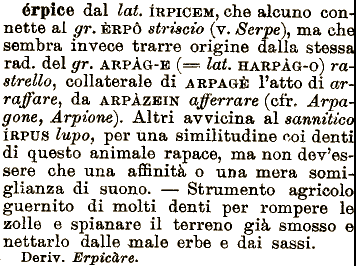 érpice dal lat. ÍRPICEM, che alcuno con-
nette al gr. ÈRPÔ striscio (v. Serpe), ma che
sembra invece trarre origine dalla stessa
rad. del gr. ARPÀG-E (= lat. HARPÀG-O) ra-
strello, collaterale di ARPAGÈ l'atto di ar-
raffare, da ARPÀZEIN afferrare (cfr. Arpa-
gone, Arpione). Altri avvicina al sannitico
ÍRPUS lupo, per una similitudine coi denti
di questo animale rapace, ma non dev'es-
sere che una affinità o una mera somi-
glianza di suono. — Strumento agricolo
guernito di molti denti per rompere le
zolle e spianare il terreno già smosso e
nettarlo dalle male erbe e dai sassi.
Deriv. Erpicàre.